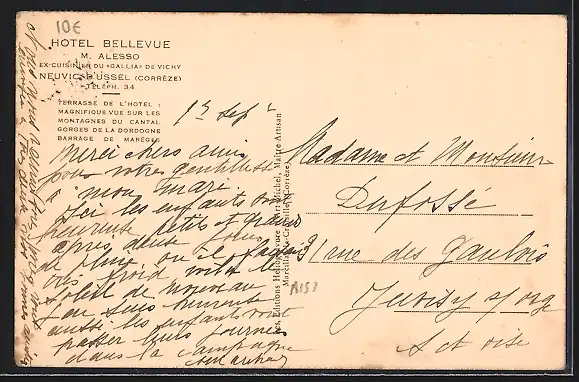 10€
HOTEL BELLEVUE
M. ALESSO
EX-CUISINIER DU «GALLIA» DE VICHY
NEUVIC-D'USSEL (CORRÈZE)
TÉLÉPH. 34
TERRASSE DE L'HOTEL :
MAGNIFIQUE VUE SUR LES
MONTAGNES DU CANTAL
GORGES DE LA DORDOGNE
BARRAGE DE MARÈGES
1er Sept
Merci chers amis
pour votre gentillesse
à mon mari.
Ici les enfants sont
heureux petits et grands
après deux jours
de pluie où il faisait
très froid voilà le
soleil de nouveau
je suis heureuse
aussi les enfants vont
passer leurs journées
dans la campagne
Les Éditions Hélio Michel, Maître Artisan
(Corrèze)
Madame et Monsieur
Defossé
31 rue des Gaulois
Juvisy s/ Org
S et oise
A153